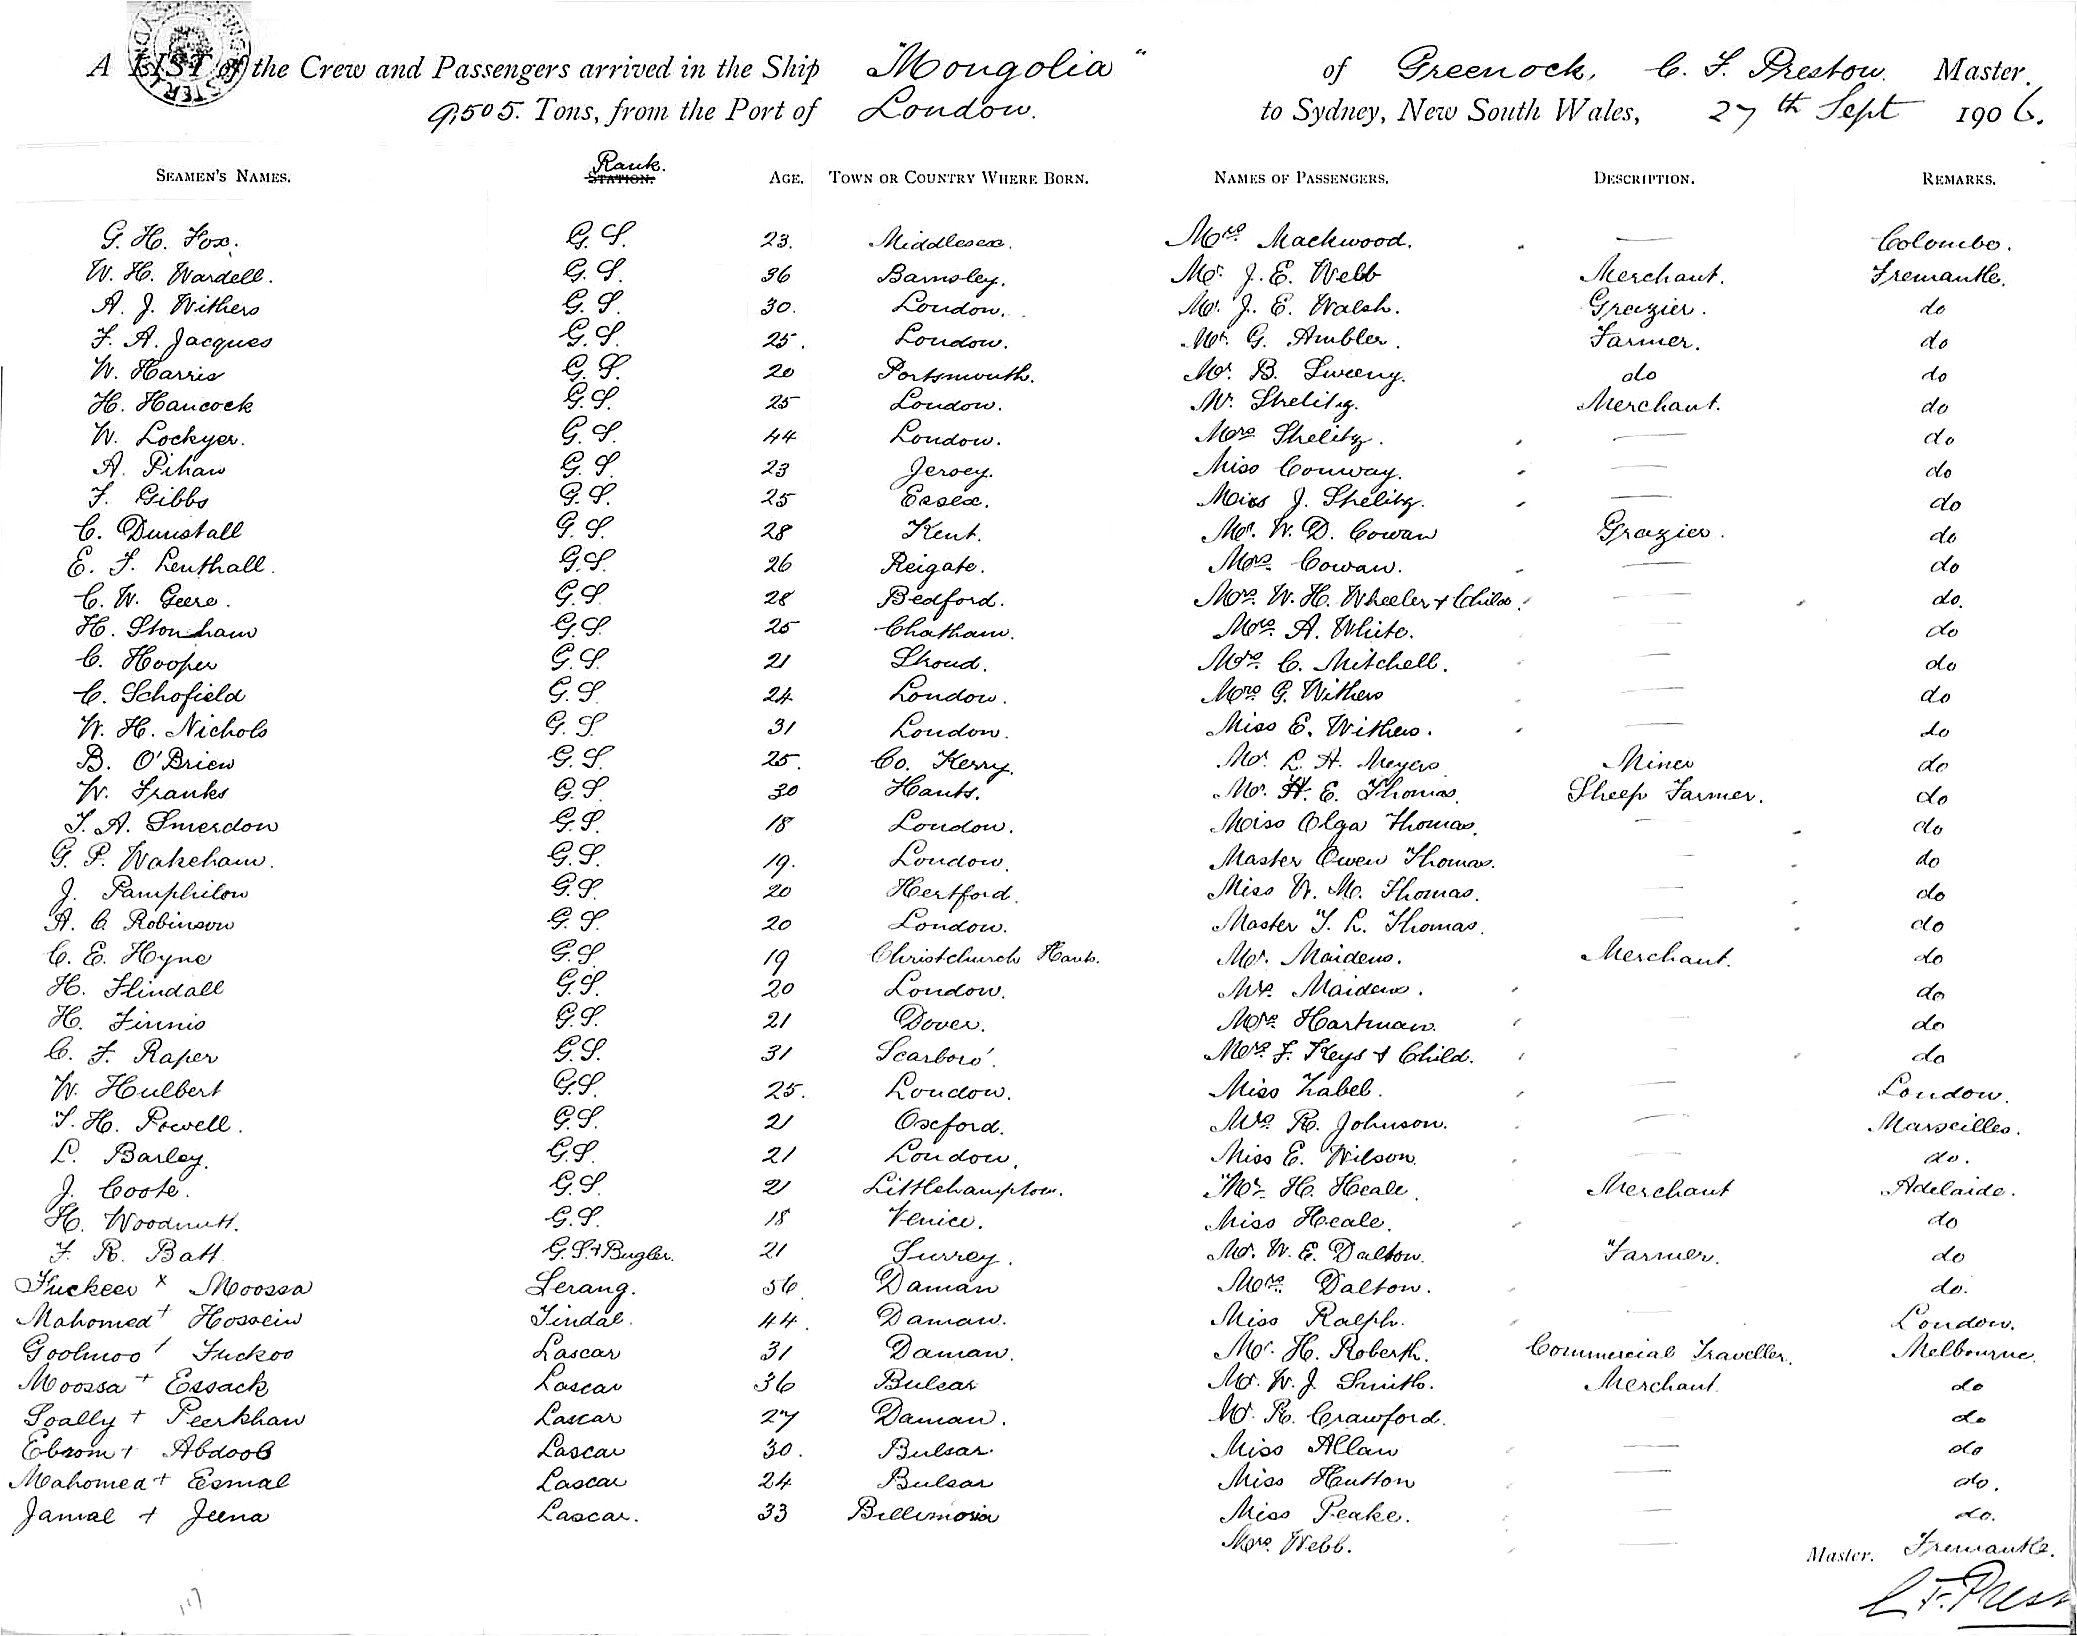 A LIST of the Crew and Passengers arrived in the Ship "Mongolia" of Greenock, C. F. Preston. Master.
9,505. Tons, from the Port of London. to Sydney, New South Wales, 27th Sept 1906.
SEAMEN'S NAMES. Rank. STATION. AGE. TOWN OR COUNTRY WHERE BORN. NAMES OF PASSENGERS. DESCRIPTION. REMARKS.
G. H. Fox. G.S. 23. Middlesex. Mrs. Mackwood. — Colombo.
W. H. Wardell. G.S. 36 Barnsley. Mr. J. E. Webb Merchant. Fremantle.
A. J. Withers G.S. 30. London. Mr. J. E. Walsh. Grazier. do
F. A. Jacques G.S. 25. London. Mr. G. Ambler. Farmer. do
W. Harris G.S. 20 Portsmouth. Mr. B. Sweeny. do do
H. Hancock G.S. 25 London. Mr. Shelitz. Merchant. do
W. Lockyer. G.S. 44 London. Mrs Shelitz. — do
A. Pihan G.S. 23 Jersey. Miss Conway. — do
F. Gibbs G.S. 25 Essex. Miss J. Shelitz. — do
C. Dunstall G.S. 28 Kent. Mr. W. D. Cowan Grazier. do
E. F. Lenthall. G.S. 26 Reigate. Mrs. Cowan. — do
C. W. Geere. G.S. 28 Bedford. Mrs. W. H. Wheeler + Child. — do.
H. Stonham G.S. 25 Chatham. Mrs. A. White. — do
C. Hooper G.S. 21 Stroud. Mrs. C. Mitchell. — do
C. Schofield G.S. 24 London. Mrs G. Withers — do
W. H. Nichols G.S. 31 London. Miss E. Withers. — do
B. O'Brien G.S. 25. Co. Kerry. Mr. L. A. Meyers Miner do
W. Franks G.S. 30 Hants. Mr. H. E. Thomas. Sheep Farmer. do
T. A. Smerdon G.S. 18 London. Miss Olga Thomas. — do
G. P. Wakeham. G.S. 19. London. Master Owen Thomas. — do
J. Pamphilon G.S. 20 Hertford. Miss W. M. Thomas. — do
A. C. Robinson G.S. 20 London. Master T. L. Thomas. — do
C. E. Hyne G.S. 19 Christchurch Hants. Mr. Maidens. Merchant. do
H. Flindall G.S. 20 London. Mrs. Maidens. — do
H. Finnis G.S. 21 Dover. Mrs. Hartman. — do
C. F. Raper G.S. 31 Scarboro'. Mrs. F. Keys + Child. — do
W. Hulbert G.S. 25. London. Miss Zabel. — London.
T. H. Powell. G.S. 21 Oxford. Mrs R. Johnson. — Marseilles.
L. Barley. G.S. 21 London. Miss E. Wilson. — do.
J. Coote. G.S. 21 Littlehampton. Mr. H. Heale. Merchant Adelaide.
H. Woodnutt. G.S. 18 Venice. Miss Heale. — do
F. R. Batt G.S. + Bugler. 21 Surrey. Mr. W. E. Dalton. Farmer. do
Fuckeer x Moossa Serang. 56 Daman Mrs. Dalton. — do.
Mahomed + Hossein Tindal. 44. Daman. Miss Ralph. — London.
Goolmoo ' Fuckoo Lascar 31 Daman. Mr. H. Roberth. Commercial Traveller. Melbourne.
Moossa + Essack Lascar 36 Bulsar Mr. W. J. Smith. Merchant. do
Soally + Peerkhan Lascar 27 Daman. Mr. R. Crawford. — do
Ebrom + Abdool Lascar 30. Bulsar. Miss Allan — do
Mahomed + Esmal Lascar 24 Bulsar Miss Hutton — do.
Jamal + Jeena Lascar. 33 Billimoria Miss Peake. — do.
Mrs. Webb. — Fremantle.
Master.
C. F. Prest